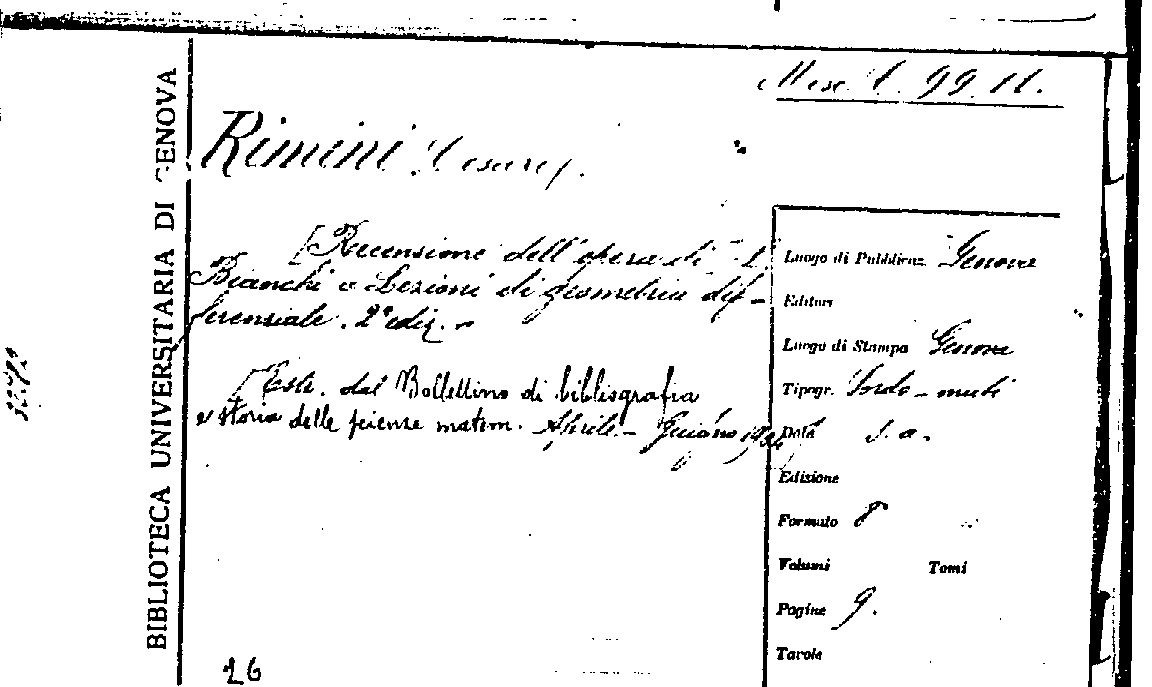 Misc. A. 99. 11.
BIBLIOTECA UNIVERSITARIA DI GENOVA
Rimini Cesare.
[Recensione dell'opera di: L.
Bianchi « Lezioni di geometria dif-
ferenziale. 2ª ediz. -
[Estr. dal Bollettino di bibliografia
e storia delle scienze matem. Aprile - Giugno
Luogo di Pubblicaz. Genova
Editori
Luogo di Stampa Genova
Tipogr. Sordo-muti
Data s. a.
Edizione
Formato 8°
Volumi Tomi
Pagine 9.
Tavole
26